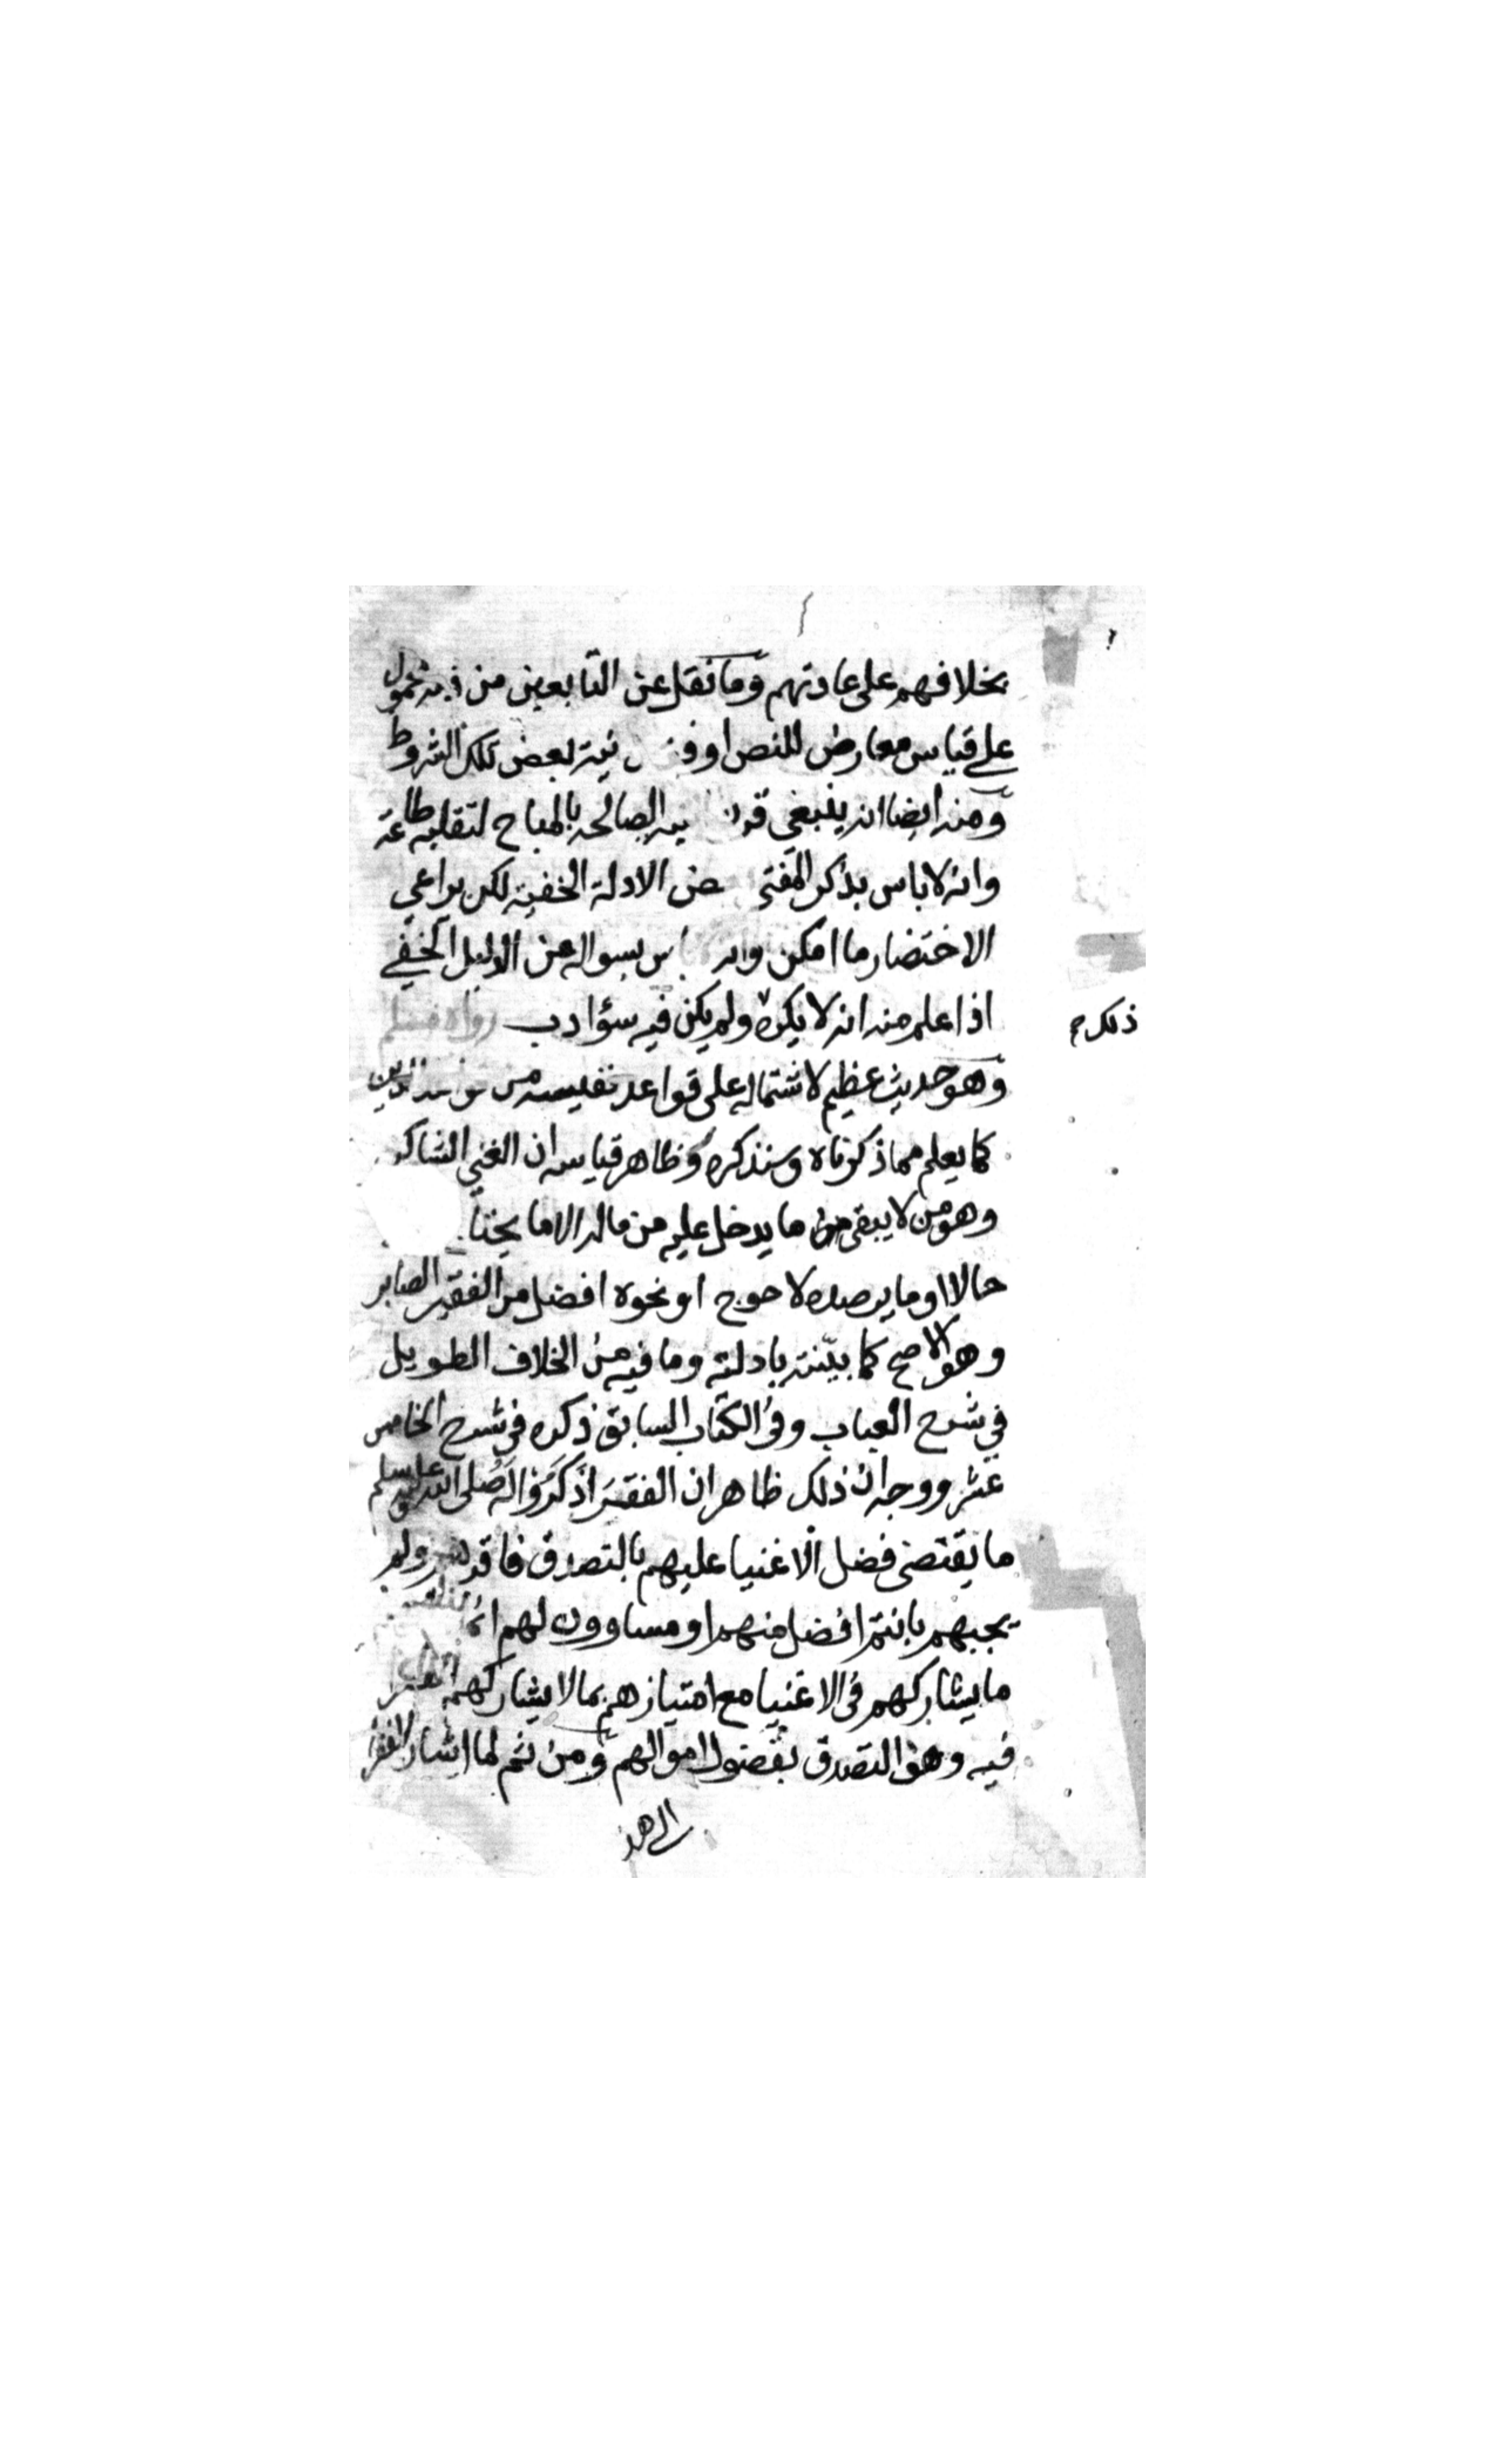 بخلافهم على عادتهم وما نقل عن التابعين من محمول
على قياس معارض للنص او نية بعض تلك الشروط
ومنه ايضا انه ينبغي الصالحه بالمباح لتقلبه طاعة
وانه لا باس بذكر المفتي الادلة الخفية لكن يراعي
الاختصار ما امكن بسواله عن الدليل الخفي
اذا علم منه انه لا يكره ولم يكن فيه سؤ ادب رواه مسلم
ذلك
وهو حديث عظيم لاشتماله على قواعد نفيسه من الدين
كما يعلم مما ذكرناه وسنذكره وظاهر قياسه ان الغني الشاكر
وهو من لا يبقى مما يدخل عليه من ماله الا ما
حالا او ما يرصده لاحوج او نحوه افضل من الفقير الصابر
وهو الاصح كما بيّنته بادلته وما فيه من الخلاف الطويل
في شرح العباب وفي الكتاب السابق ذكره في شرح الخامس
عشر ووجه ان ذلك ظاهر ان الفقرا ذكروا له صلى الله عليه وسلم
ما يقتضي فضل الاغنيا عليهم بالتصدق فاقرهم ولم
يجبهم بانتم افضل منهم او مساوون لهم
ما يشاركهم في الاغنيا مع امتيازهم بما لا يشاركهم الفقرا
فيه وهو التصدق بفضول اموالهم ومن ثم لما الفقرا
الى هذ